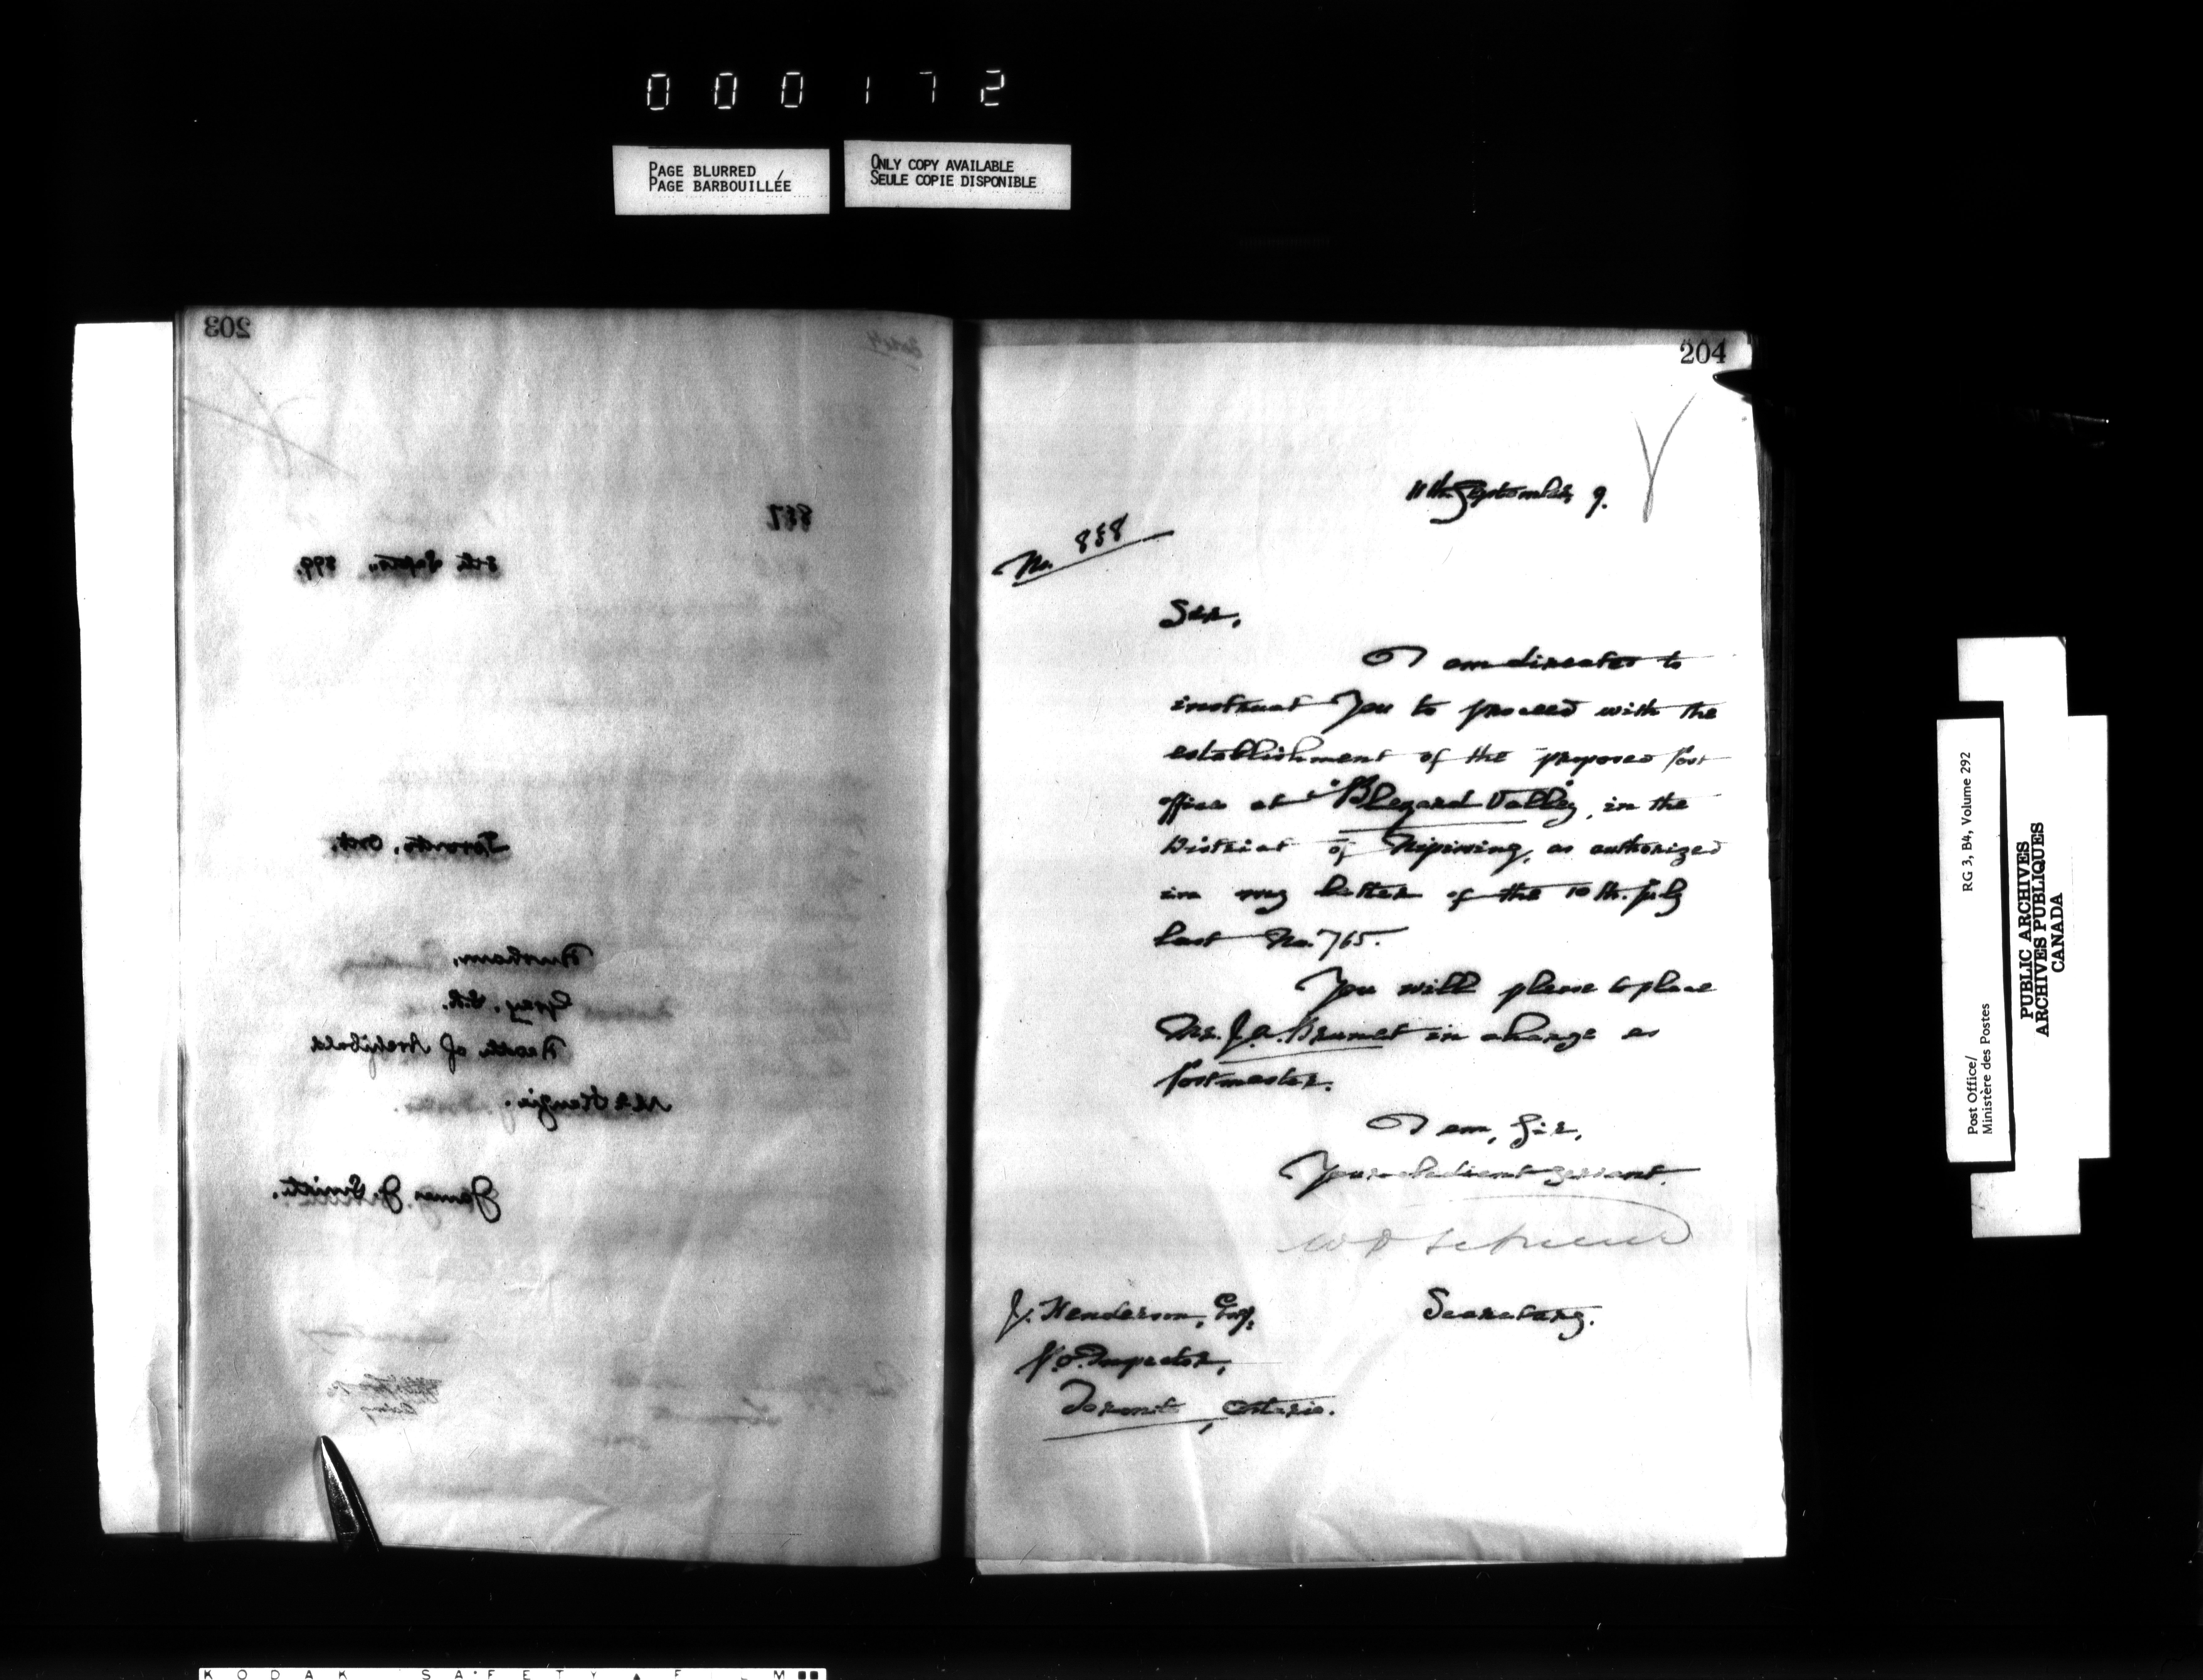 000172
PAGE BLURRED
PAGE BARBOUILLÉE
ONLY COPY AVAILABLE
SEULE COPIE DISPONIBLE
203
887
8th Septr., 899.
Toronto, Ont.
Durham,
Grey, S.R.
Death of Archibald
McKenzie.
James J. Smith.
204
11th. September, 9.
No. 888
Sir,
I am directed to
instruct you to proceed with the
establishment of the proposed post
office at "Blezard Valley", in the
District of Nipissing, as authorized
in my letter of the 10th. July
last No. 765.
You will please to place
Mr. J.A. Brunet in charge as
Postmaster.
I am, Sir,
Your obedient servant.
Secretary.
J. Henderson, Esq.
P.O. Inspector,
Toronto, Ontario.
Post Office/
Ministère des Postes
RG 3, B4, Volume 292
PUBLIC ARCHIVES
ARCHIVES PUBLIQUES
CANADA
KODAK SAFETY FILM